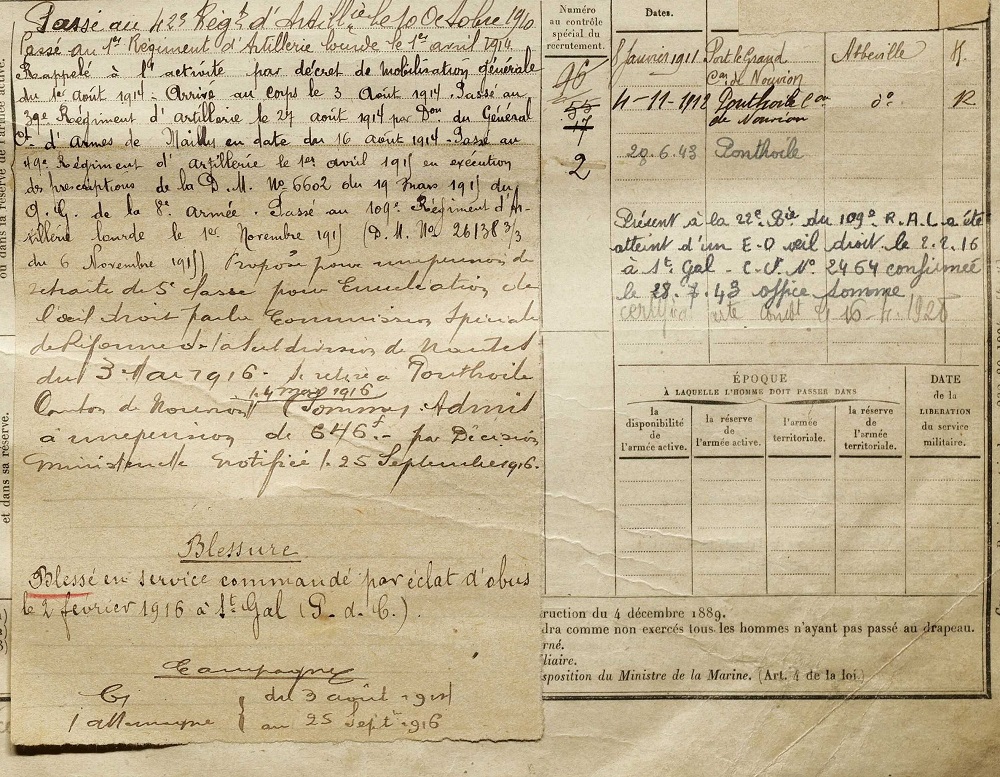 Passé au 42e Régt d'Artillerie le 10 Octobre 1910
Passé au 1er Régiment d'Artillerie lourde le 1er avril 1914.
Rappelé à l'activité par décret de mobilisation générale
du 1er août 1914 - Arrivé au corps le 3 Août 1914. Passé au
39e Régiment d'Artillerie le 27 août 1914 par Don du Général
Ct d'Armes de Mailly en date du 16 août 1914 - Passé au
49e Régiment d'artillerie le 1er avril 1915 en exécution
des prescriptions de la D.M. No 6602 du 19 Mars 1915 du
G.G. de la 8e armée. Passé au 109e Régiment d'Ar-
tillerie lourde le 1er Novembre 1915 (D.M. No 26138 3/3
du 6 Novembre 1915) Proposé pour une pension de
retraite de 5e classe pour Enucléation de
l'œil droit par la Commission Spéciale
de Réforme de la Subdivision de Nantes
du 3 Mai 1916. Se retire à Ponthoile
1.4 mai 1916
Canton de Nouvion (Somme) Admis
à une pension de 646f - par Décision
Ministérielle notifiée le 25 Septembre 1916.
Blessure
Blessé en service commandé par éclat d'obus
le 2 février 1916 à St Gal (P. d. C.).
Campagne
C/
l'allemagne
du 3 août 1914
au 25 Sept 1916
ou dans la réserve de l'armée active.
et dans sa réserve.
Numéro
au contrôle
spécial du
recrutement.
Dates.
96
55
17
2
8 Janvier 1911 Port le Grand Abbeville R.
Con de Nouvion
4-11-1912 Ponthoile Con do R
de Nouvion
28.6.43 Ponthoile
Présent à la 22e Bie du 109e R.A.L a été
atteint d'un E.O œil droit le 2.2.16
à St Gal - C.O. No 2464 confirmée
le 28.7.43 office Somme
ÉPOQUE
À LAQUELLE L'HOMME DOIT PASSER DANS
la
disponibilité
de
l'armée active.
la réserve
de
l'armée active.
l'armée
territoriale.
la réserve
de
l'armée
territoriale.
DATE
de la
LIBÉRATION
du service
militaire.
ruction du 4 décembre 1889.
dra comme non exercés tous les hommes n'ayant pas passé au drapeau.
rné.
liaire.
sposition du Ministre de la Marine. (Art. 4 de la loi.)